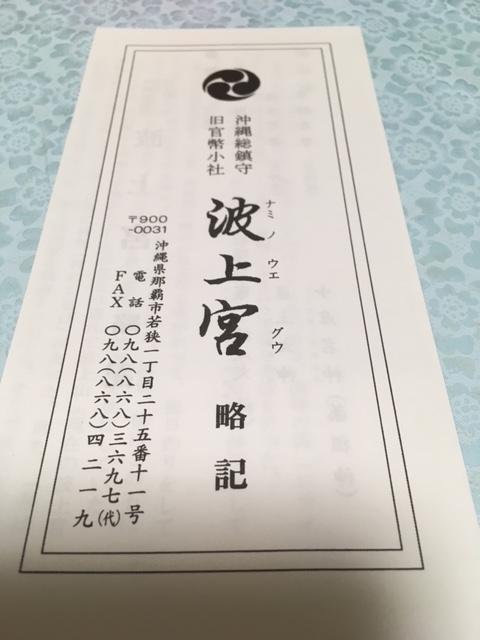 沖縄総鎮守
旧官幣小社
波上宮 略記
ナミノウエグウ
〒900
-0031
沖縄県那覇市若狭一丁目二十五番十一号
電話 〇九八(八六八)三六九七(代)
FAX 〇九八(八六八)四二一九